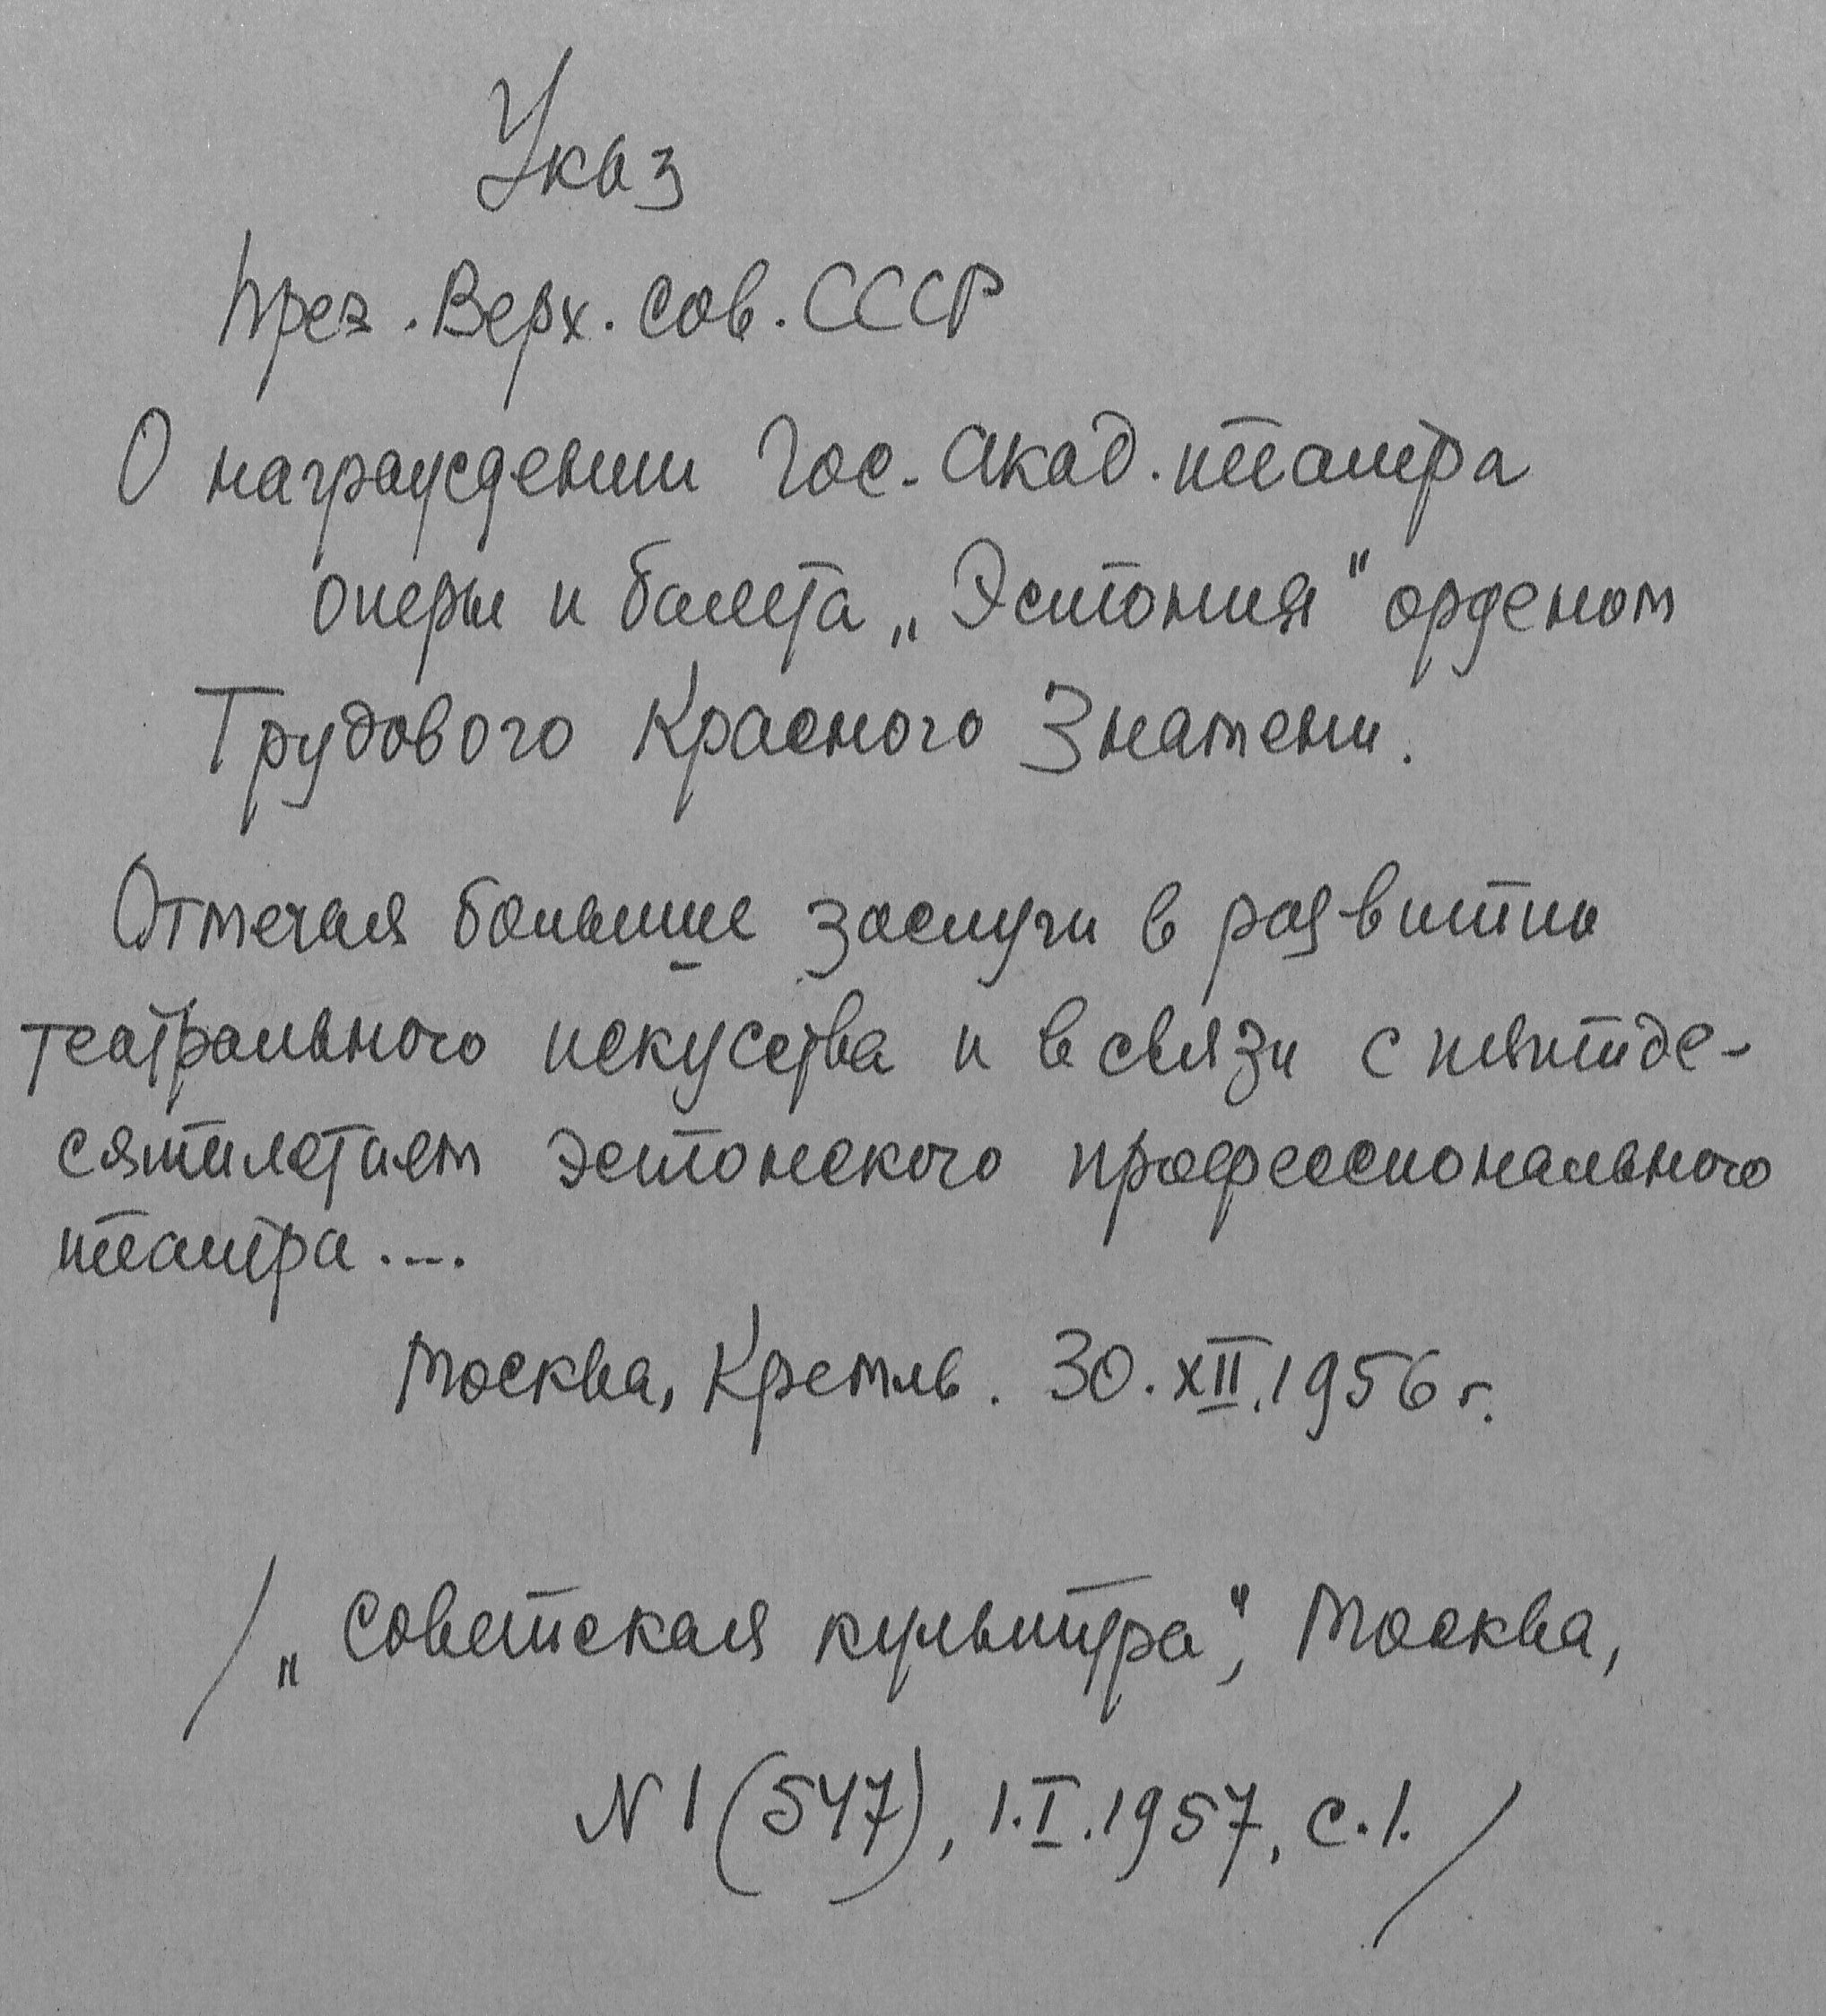 Указ
През. Верх. Сов. СССР
О награждении Гос. Акад. театра
оперы и балета „Эстония" орденом
Трудового Красного Знамени.
Отмечая большие заслуги в развитии
театрального искусства и в связи с пятиде-
сятилетием эстонского профессионального
театра....
Москва, Кремль. 30.XII.1956 г.
/„Советская культура", Москва,
N 1 (547), 1.I.1957, с.1./